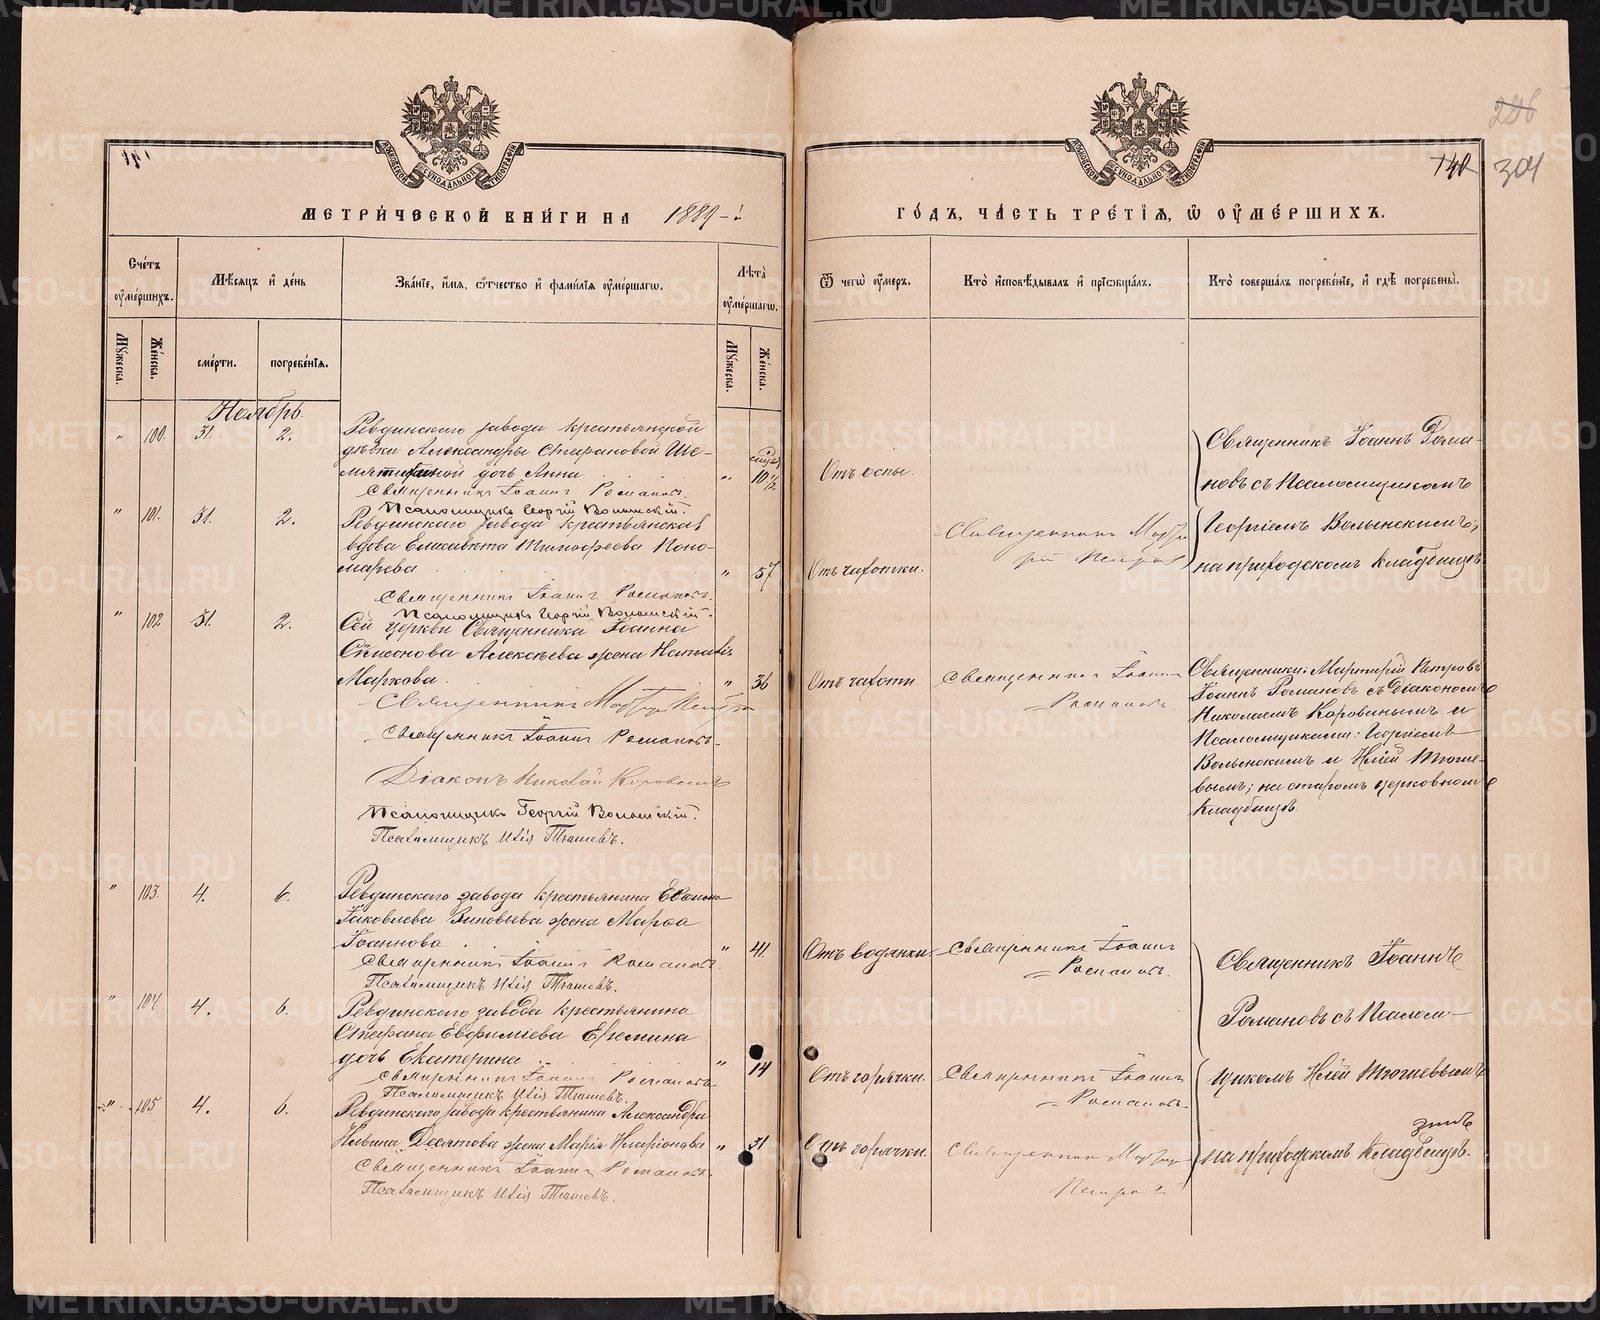 METRIKI.GASO-URAL.RU
МЕТРИ́ЧЕСКОЙ КНИ́ГИ НА 1889-й
Сче́тъ ᲂу҆ме́ршихъ.
Мѣ́сяцъ и҆ де́нь
Зва́нїе, и҆́мя, ѻ҆́тчество и҆ фами́лїя ᲂу҆ме́ршагѡ.
Лѣ́та ᲂу҆ме́ршагѡ.
Мꙋ́жеска.
Же́нска.
сме́рти.
погребе́нїя.
Мꙋ́жеска.
Же́нска.
Ноябрь
" 100. 31. 2. Ревдинскаго завода крестьянской
дѣвки Александры Стефановой Ше-
мятихиной дочь Анна " 10½
Священникъ Іоаннъ Романовъ.
Псаломщикъ Георгій Волынскій.
" 101. 31. 2. Ревдинскаго завода крестьянская
вдова Елисавета Тимофеева Поно-
марева " 57
Священникъ Іоаннъ Романовъ.
Псаломщикъ Георгій Волынскій.
" 102 31. 2. Сей церкви Священника Іоанна
Симеонова Алексѣева жена Наталія
Маркова. " 36
Священникъ Мартирій Петровъ
Священникъ Іоаннъ Романовъ.
Діаконъ Николай Коровинъ
Псаломщикъ Георгій Волынскій.
Псаломщикъ Илія Тюшевъ.
" 103. 4. 6. Ревдинскаго завода крестьянина
Іаковлева Зиновьева жена Марѳа
Іоаннова " 41.
Священникъ Іоаннъ Романовъ.
Псаломщикъ Илія Тюшевъ.
" 104 4. 6. Ревдинскаго завода крестьянина
Стефана Евфиміева Еремина
дочь Екатерина " 14
Священникъ Іоаннъ Романовъ.
Псаломщикъ Илія Тюшевъ.
" 105 4. 6. Ревдинскаго завода крестьянина Александра
Ильина Десятова жена Марія Иларіонова " 31
Священникъ Іоаннъ Романовъ.
Псаломщикъ Илія Тюшевъ.
140 304
ГО́ДЪ, ЧА́СТЬ ТРЕ́ТЇѦ, Ѡ҆ ОУ҆МЕ́РШИХЪ.
Ѿ чегѡ̀ ᲂу҆́меръ.
Кто̀ и҆сповѣ́дывалъ и҆ прїѡбща́лъ.
Кто̀ соверша́лъ погребе́нїе, и҆ гдѣ̀ погребены̀.
Отъ оспы.
Священникъ Іоаннъ Рома-
новъ съ Псаломщикомъ
Отъ чахотки.
Священникъ Марти-
рій Петровъ
Георгіемъ Волынскимъ,
на приходскомъ кладбищѣ
Отъ чахотки
Священникъ Іоаннъ
Романовъ.
Священники: Мартирій Петровъ
Іоаннъ Романовъ съ Діакономъ
Николаемъ Коровинымъ и
Псаломщиками: Георгіемъ
Волынскимъ и Иліей Тюше-
вымъ; на старомъ церковномъ
кладбищѣ.
Отъ водянки.
Священникъ Іоаннъ
Романовъ.
Священникъ Іоаннъ
Романовъ съ Псалом-
Отъ горячки.
Священникъ Іоаннъ
Романовъ.
щикомъ Иліей Тюшевымъ
Отъ горячки.
Священникъ Мартирій
Петровъ
на приходскомъ кладбищѣ.